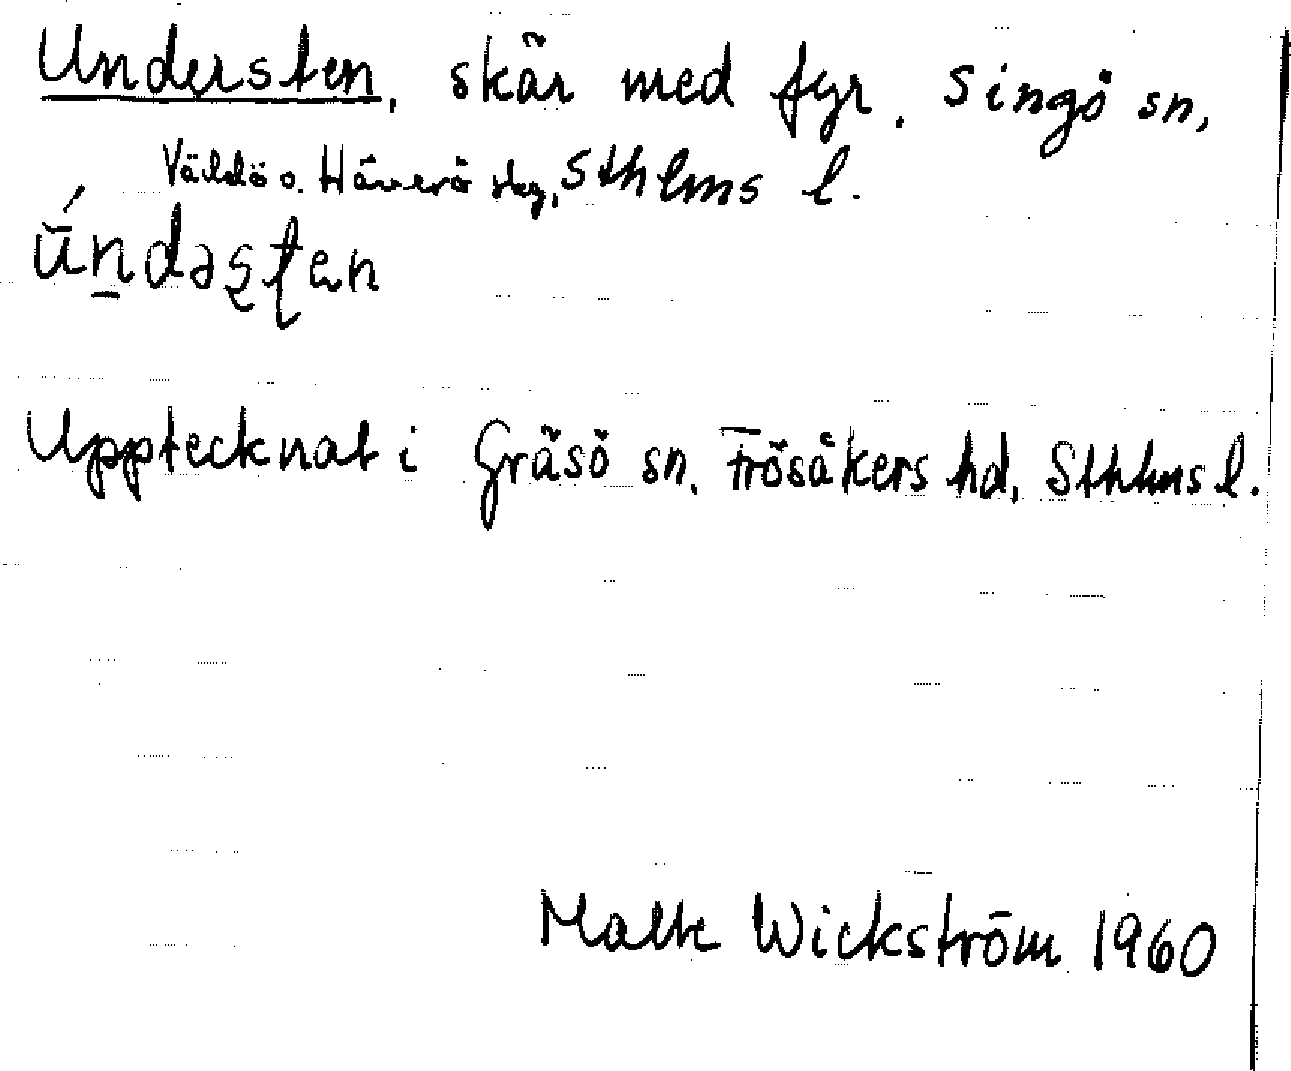 Understen, skär med fyr. Singö sn,
Väddö o. Häverö skg, Sthlms l.
úndəsten
Upptecknat i Gräsö sn. Frösåkers hd, Sthlms l.
Malte Wickström 1960